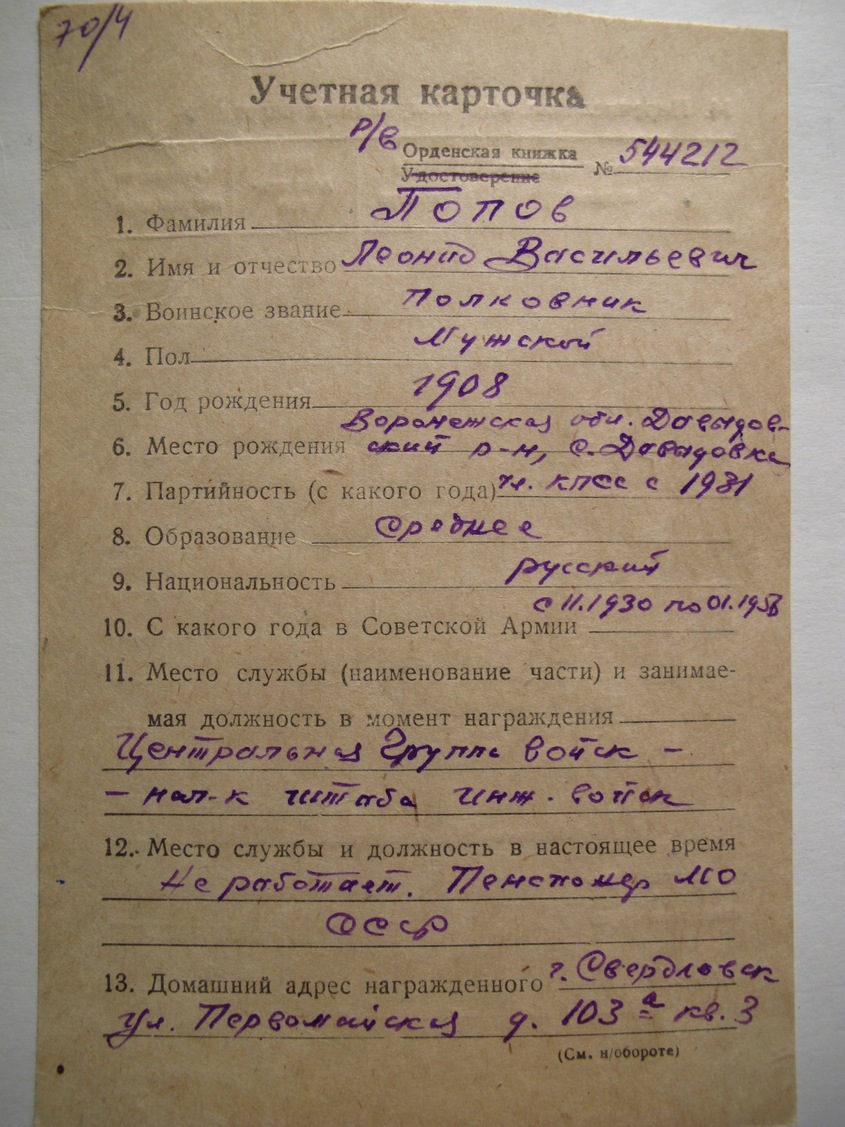 70/4
Учетная карточка
р/в Орденская книжка
Удостоверение № 544212
1. Фамилия Попов
2. Имя и отчество Леонид Васильевич
3. Воинское звание Полковник
4. Пол Мужской
5. Год рождения 1908
Воронежская обл. Давыдов-
6. Место рождения ский р-н, с. Давыдовка
7. Партийность (с какого года) чл. КПСС с 1931
8. Образование среднее
9. Национальность русский
с 11.1930 по 01.1956
10. С какого года в Советской Армии
11. Место службы (наименование части) и занимае-
мая должность в момент награждения
Центральная Группа войск -
- нач-к штаба инж. войск
12. Место службы и должность в настоящее время
Не работает. Пенсионер МО
СССР
13. Домашний адрес награжденного г. Свердловск
ул. Первомайская д. 103 а кв. 3
(См. н/обороте)